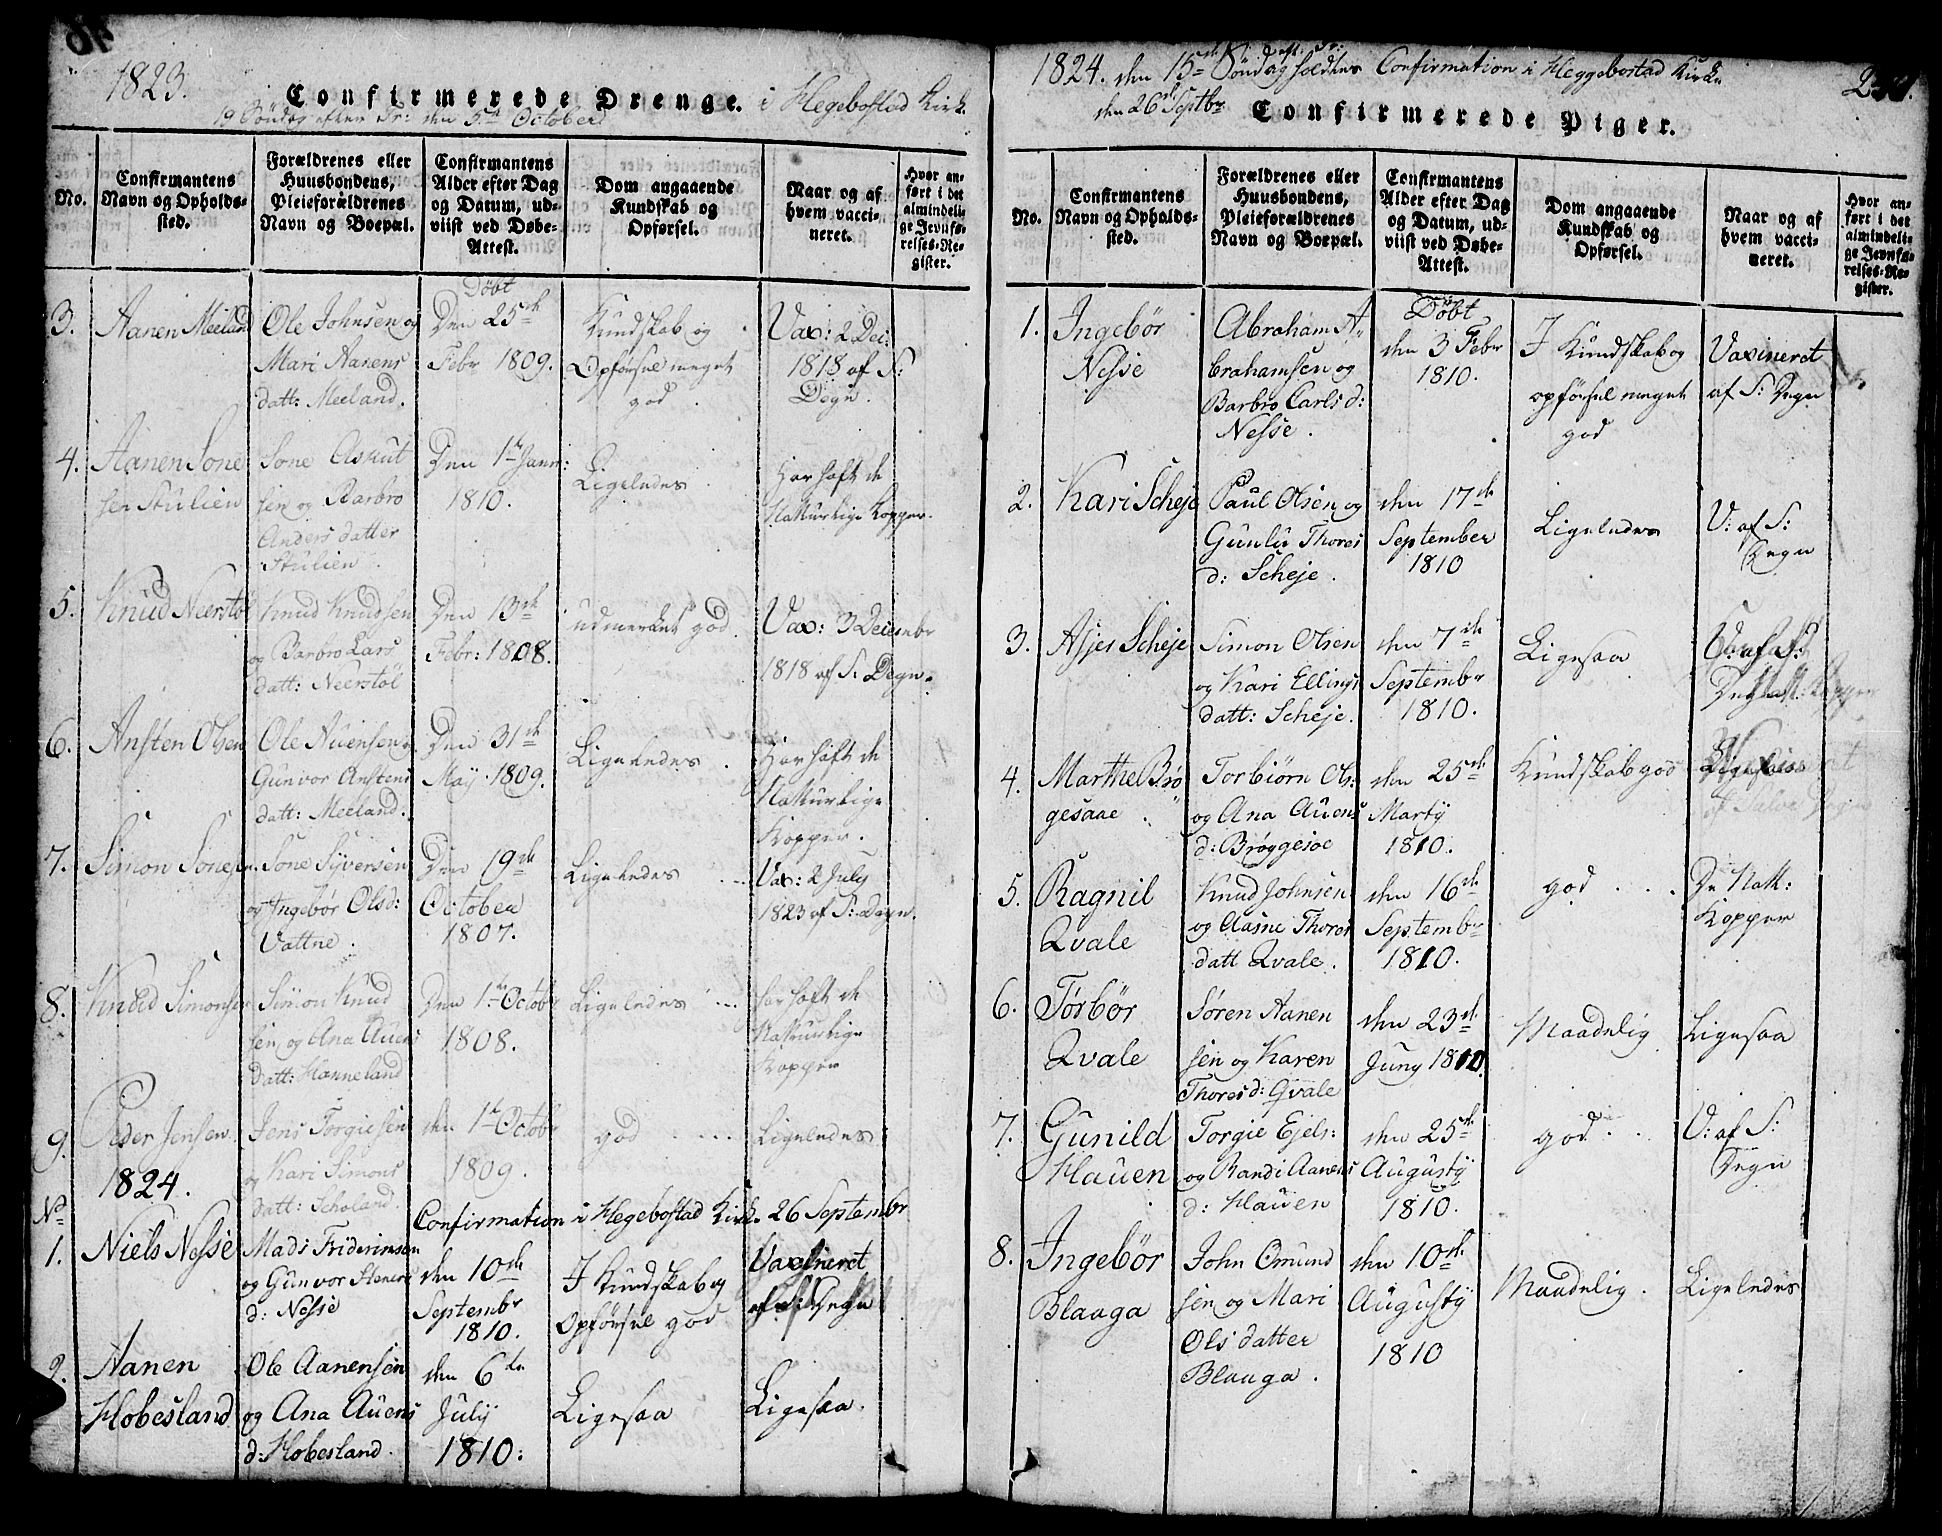 1823.
Confirmerede Drenge. i Hegebostad Kirk.
19 Söndag efter Tr: den 5te October
No.
Confirmantens Navn og Opholds-sted.
Forældrenes eller Huusbondens, Pleieforældrenes Navn og Boepæl.
Confirmantens Alder efter Dag og Datum, ud-viist ved Døbe-Attest.
Dom angaaende Kundskab og Opførsel.
Naar og af hvem vacci-neret.
Hvor an-ført i det almindeli-ge Jevnfø-relses-Re-gister.
Döbt
3. Aanen Meeland
Ole Johnsen og
Mari Aanens
datt: Meeland.
Den 25de
Febr 1809.
Kundskab og
Opförsel meget
god.
Vax: 2 Dec:
1818 af S:
Degn.
4. Aanen Sone
sen Stulien
Sone Askut
sen og Barbro
Anders datter
Stulien.
Den 1te Janv:
1810.
Ligeledes.
Har haft de
Naturlige Kopper.
5. Knud Neerstöl
Knud Knudsen
og Barbro Lars
datt: Neerstöl
Den 13de
Febr: 1808.
udmerket god.
Vax: 3 Decembr
1818 af S: Degn.
6. Ansten Olsen
Ole Auensen og
Gunvor Anstens
datt: Meeland.
Den 31te
May 1809.
Ligeledes.
Har haft de
Naturlige
Kopper.
7. Simon Sonesen.
Sone Syversen
og Ingebör Olsd:
Vattne.
Den 19de
October
1807.
Ligeledes
Vax: 2 July
1823 af S: Degn.
8. Knud Simonsen
Simon Knud
sen og Ana Auens
datt: Hanneland
Den 1te Octobr
1808.
Ligeledes
har haft de
Naturlige
Kopper
9. Peder Jensen.
Jens Torgiesen
og Kari Simons
datt: Scholand.
den 1te Octobr
1809.
god
Ligeledes
1824.
Confirmation i Hegebostad Kirk. 26 Septembr
No
1. Niels Nesse
Mads Friderimsen
og Gunvor Steners
d: Nesse
den 10de
Septembr
1810.
I Kundskab og
Opförsel god
Vaxineret
af S: Degn
2. Aanen
Hobesland
Ole Aanensen
og Ana Auens
d: Hobesland.
den 6te
July
1810.
Ligesaa
Ligesaa.
1824. den 15de Söndag eft. Tr: holdtes Confirmation i Heggebostad Kirke
den 26 Septbr
Confirmerede Piger.
No.
Confirmantens Navn og Opholds-sted.
Forældrenes eller Huusbondens, Pleieforældrenes Navn og Boepæl.
Confirmantens Alder efter Dag og Datum, ud-viist ved Døbe-Attest.
Dom angaaende Kundskab og Opførsel.
Naar og af hvem vacci-neret.
Hvor an-ført i det almindeli-ge Jevnfø-relses-Re-gister.
1. Ingebör
Nesse
Abraham A
brahamsen og
Barbro Carls d:
Nesse.
Döbt
den 3 Febr
1810.
I Kundskab og
opförsel meget
god
Vaxineret
af S: Degn
2. Kari Scheje
Paul Olsen og
Gunlu Thores
d: Scheje.
den 17de
September
1810
Ligeledes
V: af S:
Degn
3. Asjer Scheje
Simon Olsen
og Kari Ellings
datt: Scheje.
den 7de
Septembr
1810.
Ligesaa
4. Marthe Brö
gesaae
Torbiörn Ols:
og Ana Auens
d: Bröggesoe
den 25de
Martÿ
1810.
Kundskab god
5. Ragnil
Qvale
Knud Johnsen
og Aasne Thores
datt Qvale.
den 16de
Septembr
1810.
god
De Natt:
Kopper
6. Törbör
Qvale
Sören Aanen
sen og Karen
Thores d: Qvale
den 23de
Juny 1810.
Maadelig
Ligesaa
7. Gunild
Hauen
Torgie Ejels:
og Randi Aanens
d: Hauen
den 25de
Augustÿ
1810.
god
V: af S:
Degn
8. Ingebör
Blaaga
John Omund
sen og Mari
Ols datter
Blaaga.
den 10de
Augustÿ
1810
Maadelig.
Ligeledes